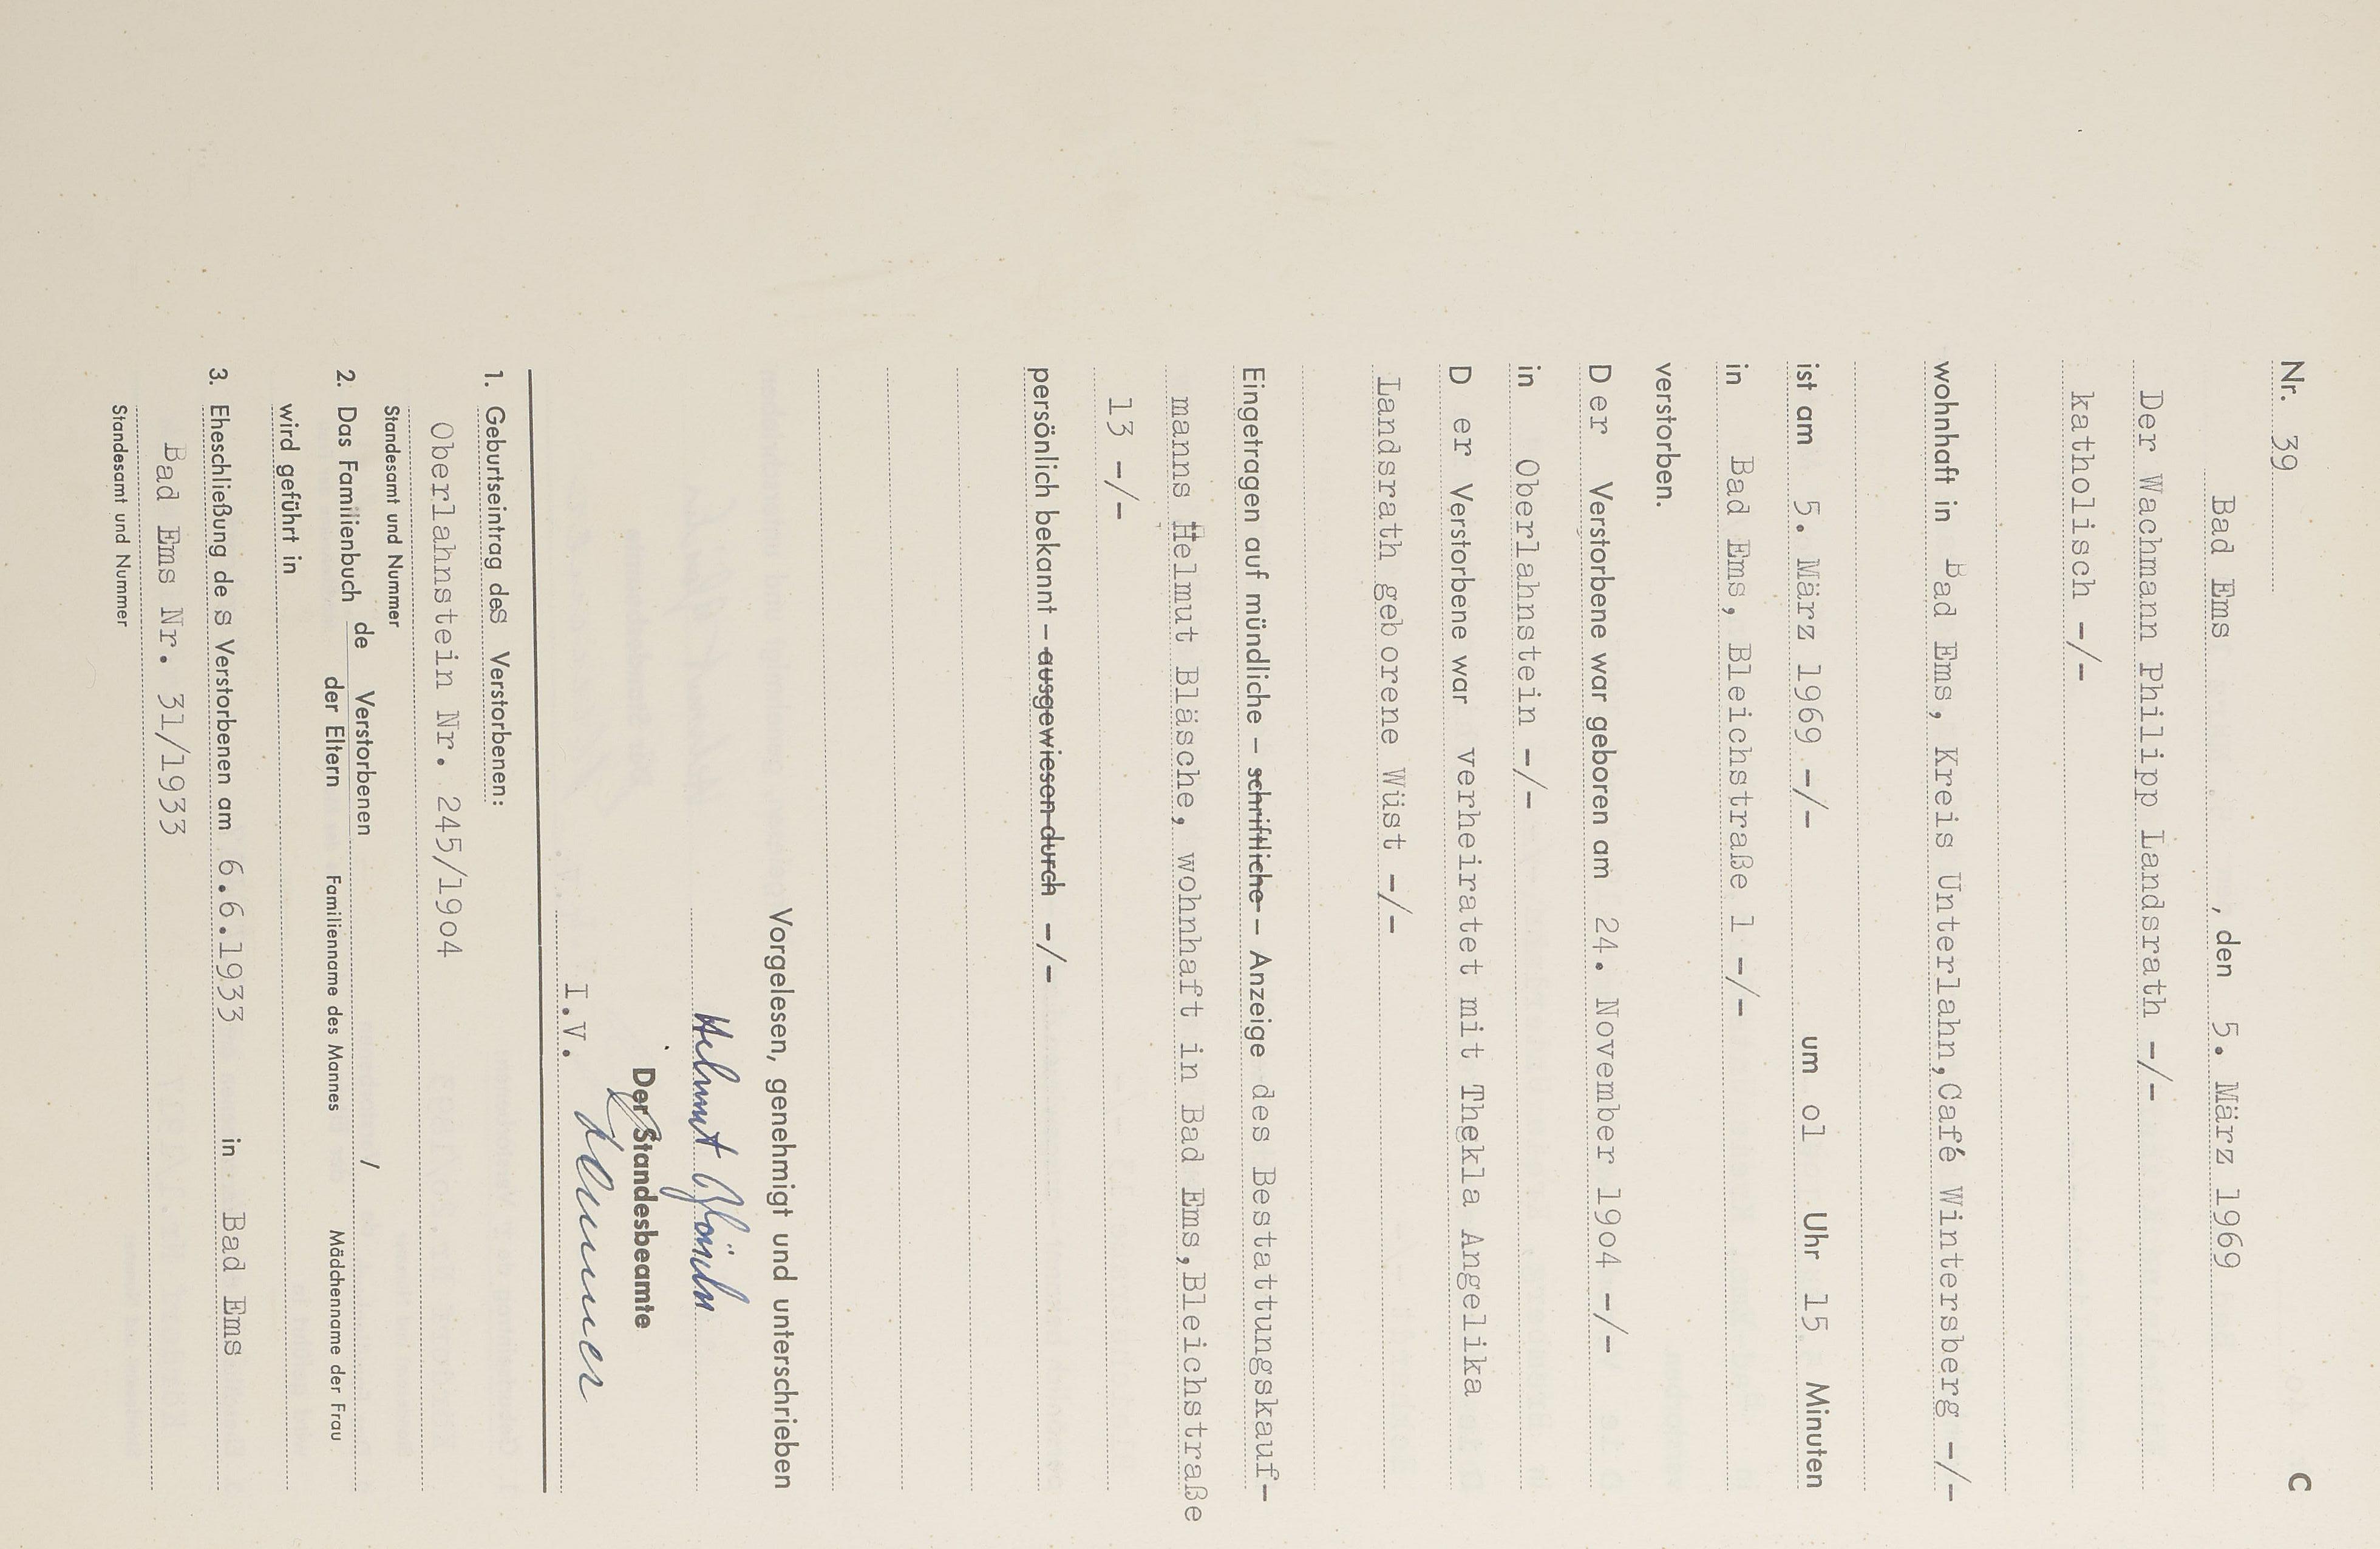 Nr. 39 C
Bad Ems , den 5. März 1969
Der Wachmann Philipp Landsrath -/-
katholisch -/-
wohnhaft in Bad Ems, Kreis Unterlahn,Café Wintersberg -/-
ist am 5. März 1969 -/- um o1 Uhr 15 Minuten
in Bad Ems, Bleichstraße 1 -/-
verstorben.
Der Verstorbene war geboren am 24. November 19o4 -/-
in Oberlahnstein -/-
D er Verstorbene war verheiratet mit Thekla Angelika
Landsrath geborene Wüst -/-
Eingetragen auf mündliche – schriftliche – Anzeige des Bestattungskauf-
manns Helmut Bläsche, wohnhaft in Bad Ems,Bleichstraße
13 -/-
persönlich bekannt – ausgewiesen durch -/-
Vorgelesen, genehmigt und unterschrieben
Helmut Bläsche
Der Standesbeamte
I.V.
1. Geburtseintrag des Verstorbenen:
Oberlahnstein Nr. 245/19o4
Standesamt und Nummer
2. Das Familienbuch de Verstorbenen /
der Eltern Familienname des Mannes Mädchenname der Frau
wird geführt in
3. Eheschließung de s Verstorbenen am 6.6.1933 in Bad Ems
Bad Ems Nr. 31/1933
Standesamt und Nummer